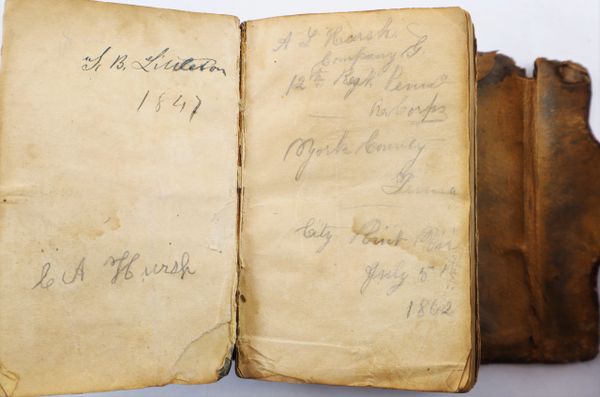 B. Littleton
1847
C A Hursh
A L Hursh
Company G.
12th Regt Penna
Rv Corps
York County
Penna
City Point
July 5th
1862